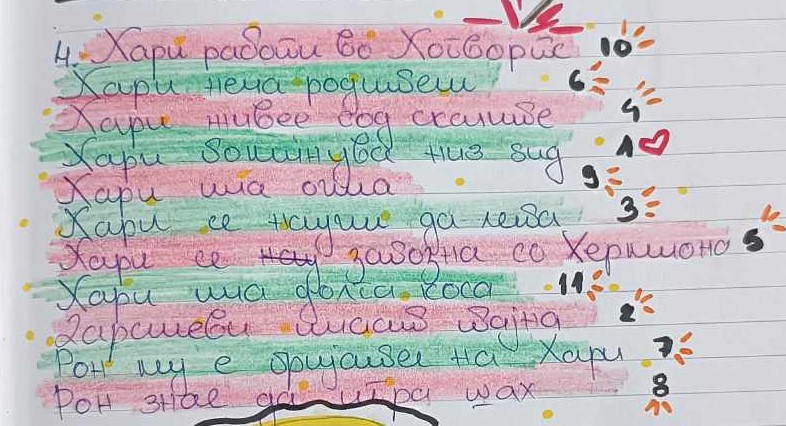 4. Хари работи во Хогвортс 10
Хари нема родители 6
Хари живее под скалите 4
Хари поминува низ ѕид 1
Хари има очила 9
Хари се научи да лета 3
Хари се нау запозна со Хермиона 5
Хари има долга коса 11
Дарслеви имаат тајна 2
Рон му е пријател на Хари 7
Рон знае да игра шах 8